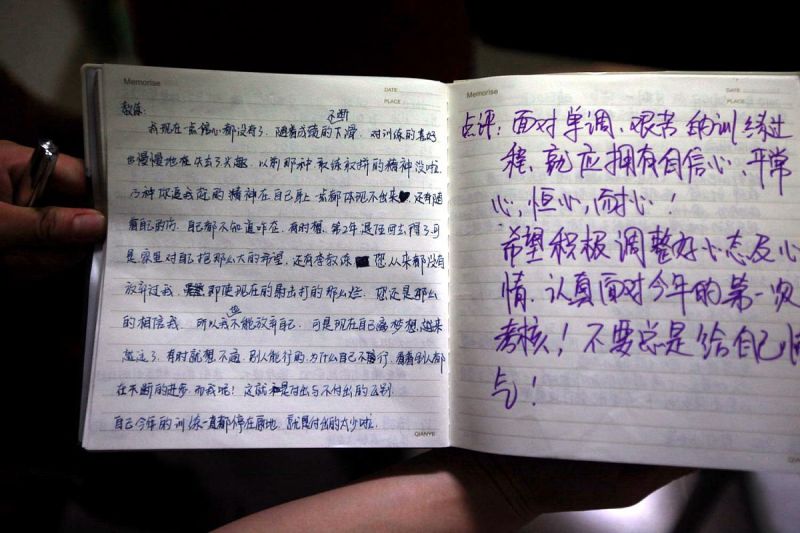 Memorise
DATE:
PLACE:
教练:
不断
我现在一点信心都没有了。随着成绩的下滑。对训练的喜好
也慢慢地在失去了兴趣。以前那种敢练敢拼的精神没啦。
精神在自己身上一点都体现不出来 还有随
着自己的伤。自己都不知道咋在。有时想。第2年是
是家里对自己抱那么大的希望。还有 教练 您从来都没有
放弃过我。即使现在的射击打的那么烂。您还是那么
也
的相信我。所以我不能放弃自己。可是现在自己离梦想。越来
越远了。有时就想不通。别人能行的。为什么自己不能行。看着别人都
在不断的进步。而我呢!这就是付出与不付出的区别。
自己今年的训练一直都停在原地。就是付出的太少啦。
QIANYE
Memorise
点评:面对单调、艰苦的训练过
程,就应拥有自信心、平常
心,恒心,耐心!
希望积极调整好心态及心
情,认真面对今年的第一次
考核!不要总是给自己
气!